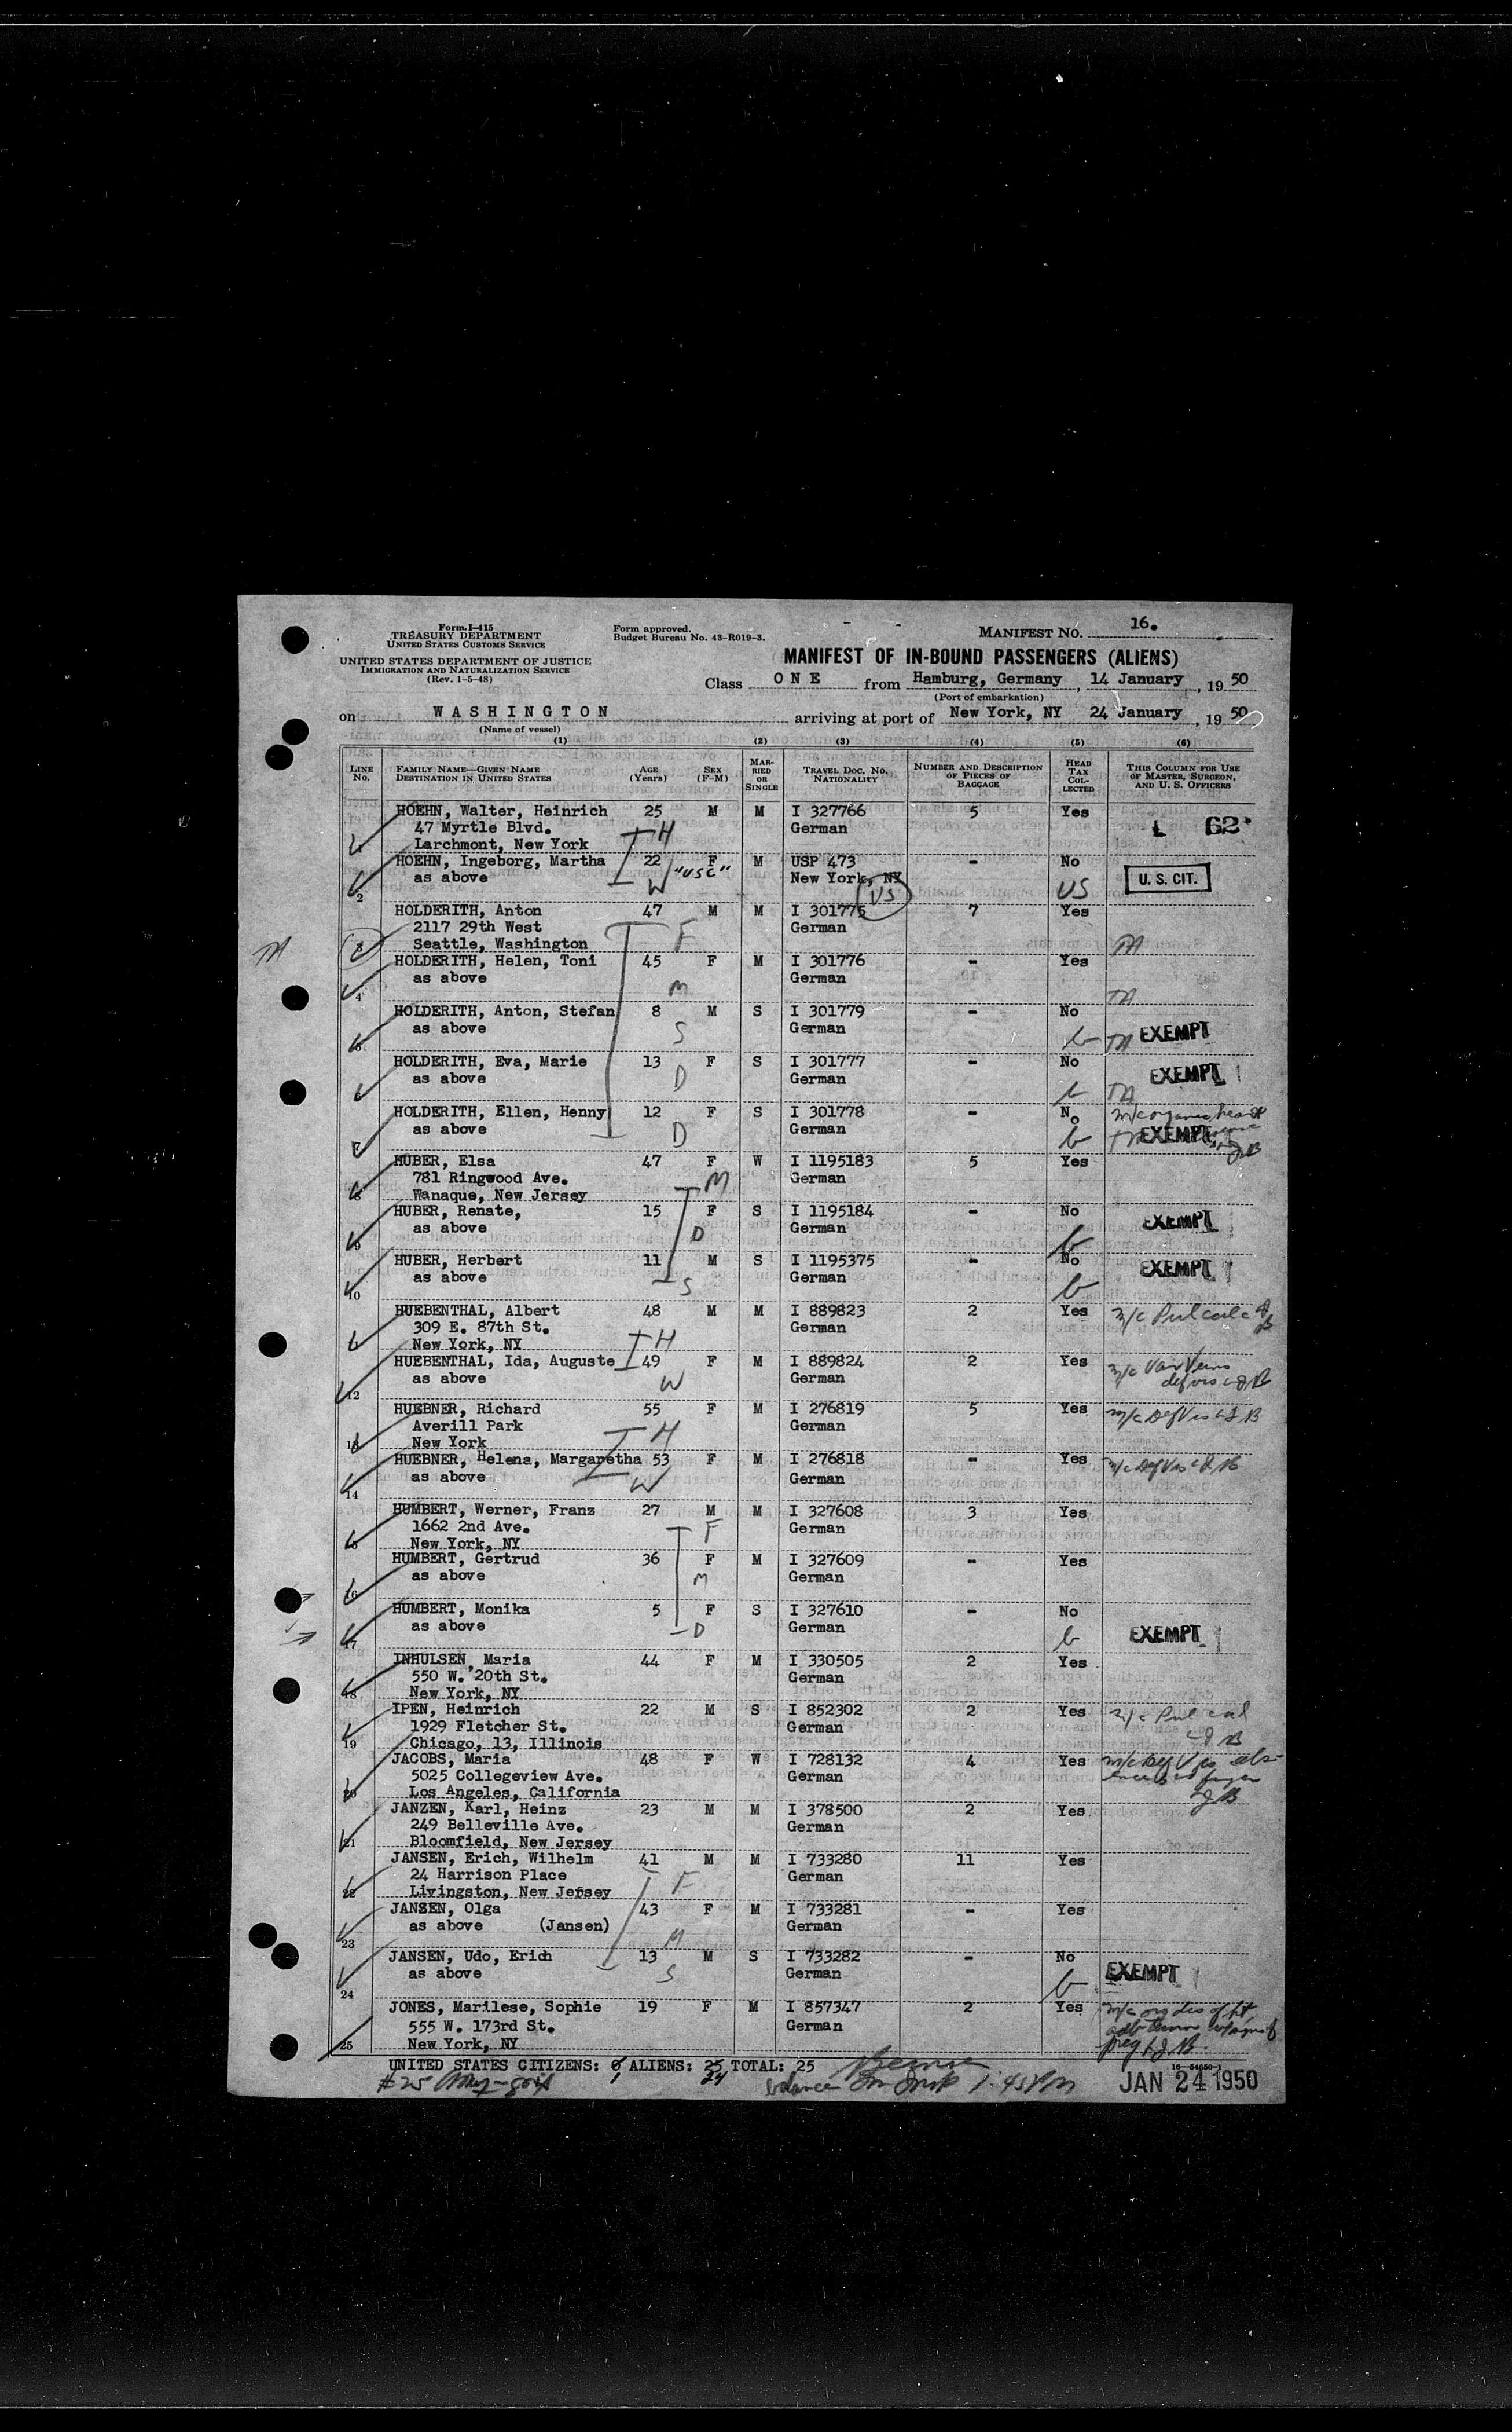 Form I-415
TREASURY DEPARTMENT
UNITED STATES CUSTOMS SERVICE
UNITED STATES DEPARTMENT OF JUSTICE
IMMIGRATION AND NATURALIZATION SERVICE
(Rev. 1-5-48)
Form approved.
Budget Bureau No. 43-R019-3.
MANIFEST NO. 16.
MANIFEST OF IN-BOUND PASSENGERS (ALIENS)
Class ONE from Hamburg, Germany, 14 January, 1950
(Port of embarkation)
on WASHINGTON arriving at port of New York, NY 24 January, 1950
(Name of vessel)
(1) (2) (3) (4) (5) (6)
LINE No. FAMILY NAME—GIVEN NAME DESTINATION IN UNITED STATES AGE (Years) SEX (F-M) MARRIED OR SINGLE TRAVEL DOC. NO. NATIONALITY NUMBER AND DESCRIPTION OF PIECES OF BAGGAGE HEAD TAX COLLECTED THIS COLUMN FOR USE OF MASTER, SURGEON, AND U. S. OFFICERS
HOEHN, Walter, Heinrich 25 M M I 327766 5 Yes
47 Myrtle Blvd. German 62
Larchmont, New York H
HOEHN, Ingeborg, Martha 22 F M USP 473 - No
as above W "USC" New York, NY US U. S. CIT.
2 US
HOLDERITH, Anton 47 M M I 301775 7 Yes
2117 29th West German
Seattle, Washington F TA
HOLDERITH, Helen, Toni 45 F M I 301776 - Yes
as above German
4 M TA
HOLDERITH, Anton, Stefan 8 M S I 301779 - No
as above S German TA EXEMPT
5
HOLDERITH, Eva, Marie 13 F S I 301777 - No
as above D German TA EXEMPT
HOLDERITH, Ellen, Henny 12 F S I 301778 - No m/c organic heart
as above D German EXEMPT
HUBER, Elsa 47 F W I 1195183 5 Yes
781 Ringwood Ave. German
Wanaque, New Jersey M
HUBER, Renate, 15 F S I 1195184 - No
as above D German EXEMPT
9
HUBER, Herbert 11 M S I 1195375 - No
as above S German EXEMPT
10
HUEBENTHAL, Albert 48 M M I 889823 2 Yes
309 E. 87th St. German
New York, NY H
HUEBENTHAL, Ida, Auguste 49 F M I 889824 2 Yes m/c Var Veins
as above W German def vis
12
HUEBNER, Richard 55 F M I 276819 5 Yes m/c Def Vis
Averill Park German
13 New York H
HUEBNER, Helena, Margaretha 53 F M I 276818 - Yes m/c Def Vis
as above W German
14
HUMBERT, Werner, Franz 27 M M I 327608 3 Yes
1662 2nd Ave. German
15 New York, NY F
HUMBERT, Gertrud 36 F M I 327609 - Yes
as above M German
16
HUMBERT, Monika 5 F S I 327610 - No
as above D German EXEMPT
17
INHULSEN, Maria 44 F M I 330505 2 Yes
550 W. 20th St. German
18 New York, NY
IPEN, Heinrich 22 M S I 852302 2 Yes
1929 Fletcher St. German
19 Chicago, 13, Illinois
JACOBS, Maria 48 F W I 728132 4 Yes m/c Def Vis
5025 Collegeview Ave. German
20 Los Angeles, California
JANZEN, Karl, Heinz 23 M M I 378500 2 Yes
249 Belleville Ave. German
21 Bloomfield, New Jersey
JANSEN, Erich, Wilhelm 41 M M I 733280 11 Yes
24 Harrison Place German
22 Livingston, New Jersey F
JANSEN, Olga 43 F M I 733281 - Yes
as above (Jansen) German
23 M
JANSEN, Udo, Erich 13 M S I 733282 - No
as above S German EXEMPT
24
JONES, Marilese, Sophie 19 F M I 857347 2 Yes
555 W. 173rd St. German
25 New York, NY
UNITED STATES CITIZENS: 1 ALIENS: 24 TOTAL: 25
16—54650-1
#25 JAN 24 1950